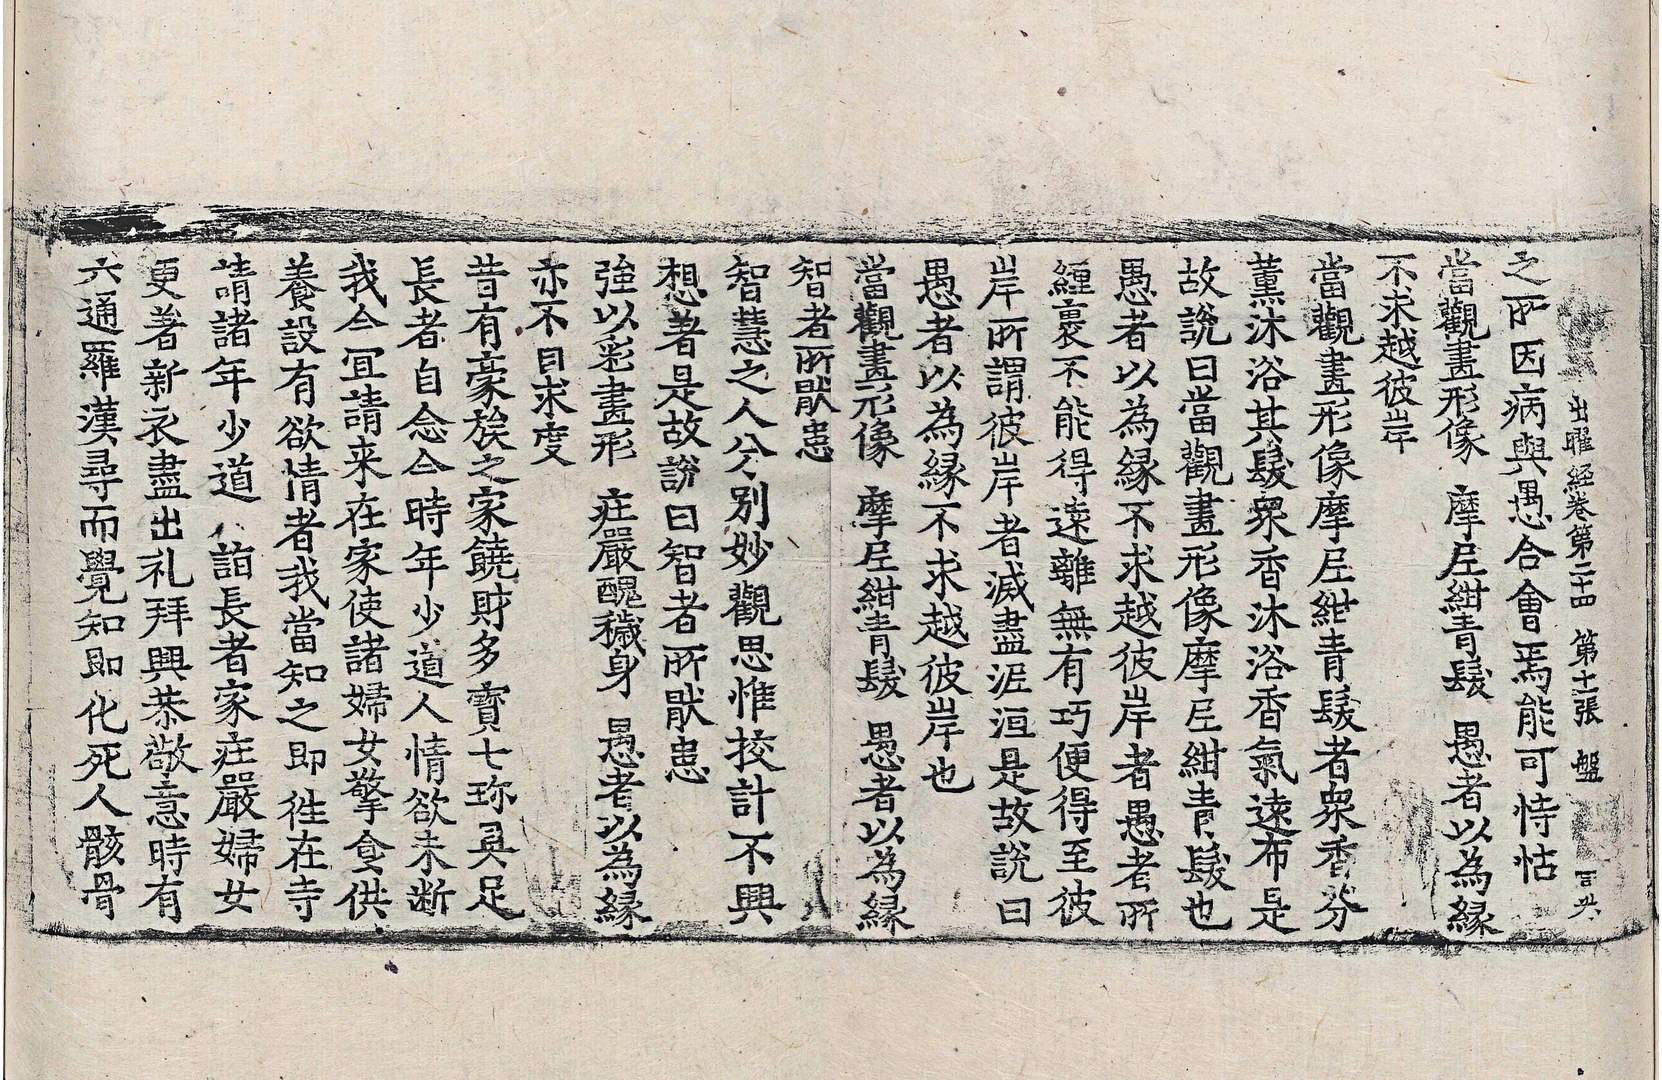 出曜経卷第二十四 第十張 盤
之所因病與愚合會焉能可恃怙
當觀畫形像 摩尼紺青髮 愚者以為縁
不求越彼岸
當觀畫形像摩尼紺青髮者衆香芬
薰沐浴其髮衆香沐浴香氣遠布是
故說曰當觀畫形像摩尼紺青髮也
愚者以為縁不求越彼岸者愚者所
纏裹不能得遠離無有巧便得至彼
岸所謂彼岸者滅盡泥洹是故說曰
愚者以為縁不求越彼岸也
當觀畫形像 摩尼紺青髮 愚者以為縁
智者所猒患
智慧之人分別妙觀思惟挍計不興
想著是故說曰智者所猒患
強以彩畫形 莊嚴醜穢身 愚者以為縁
亦不自求度
昔有豪族之家饒財多寶七珎具足
長者自念今時年少道人情欲未断
我今宜請来在家使諸婦女擎食供
養設有欲情者我當知之即徃在寺
請諸年少道人詣長者家莊嚴婦女
更著新衣盡出礼拜興恭敬意時有
六通羅漢尋而覺知即化死人骸骨